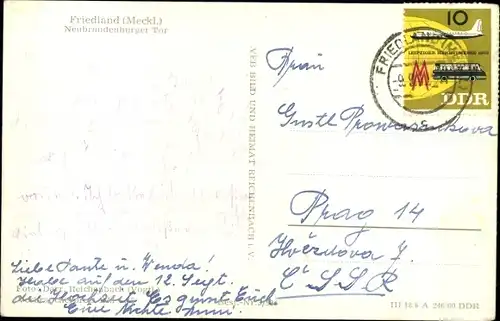 Friedland (Meckl.)
Neubrandenburger Tor
VEB BILD UND HEIMAT REICHENBACH i. V.
10
LEIPZIGER
MM
DDR
FRIEDLAND (ME
Frau
Gustl
Prag 14
Hvězdova 7.
ČSSR
Liebe Tante u. Wenda!
auf den 12. Sept.
die Hochzeit. Es grüsst Euch
Eure Nichte Anni.
Foto: Darr, Reichenbach (Vogtl.)
III 18 8 A 246/60 DDR